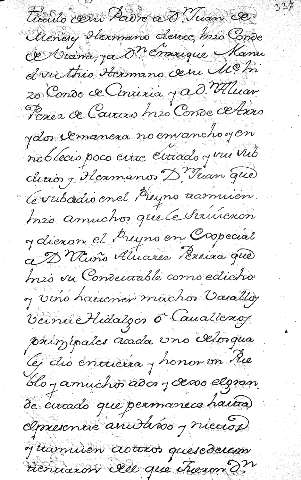 327
titulo de su Padre a Dn. Juan de
Meneses Hermano deste, hizo Conde
de Viana, y a Dn. Enrrique Manu
el su thio Hermano de su Me. hi
zo Conde de Cintria y a Dn. Alvar
Perez de Castro hizo Conde de Arro
yolos de manera no ensancho y en
noblecio poco este estado y sus sub
ditos y Hermanos Dn. Juan que
le subcedio en el Reyno tamuien
hizo a muchos que le siruieron
y dieron el Reyno en especial
a Dn. Nuño Aluares Pereira que
hizo su Condestable como e dicho
y vino ha tener muchos Vasallos
veinte Hidalgos o Caualleros
principales a cada uno de los qua
les dio en tierra y honor un Pue
blo y a muchos a dos y a tres el gran
de estado que permanece hasta
el presente a sus hijos y nietos
y tamuien a otros que sederon
tienuaron de el que fueron Dn.